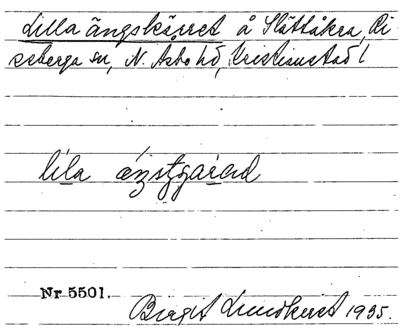 Lilla ängskärret å Slättåkra, Ri
seberga sn, N. Åsbo hd, Kristianstad l
lila
Nr 5501.
Birgit Lundkvist 1935.